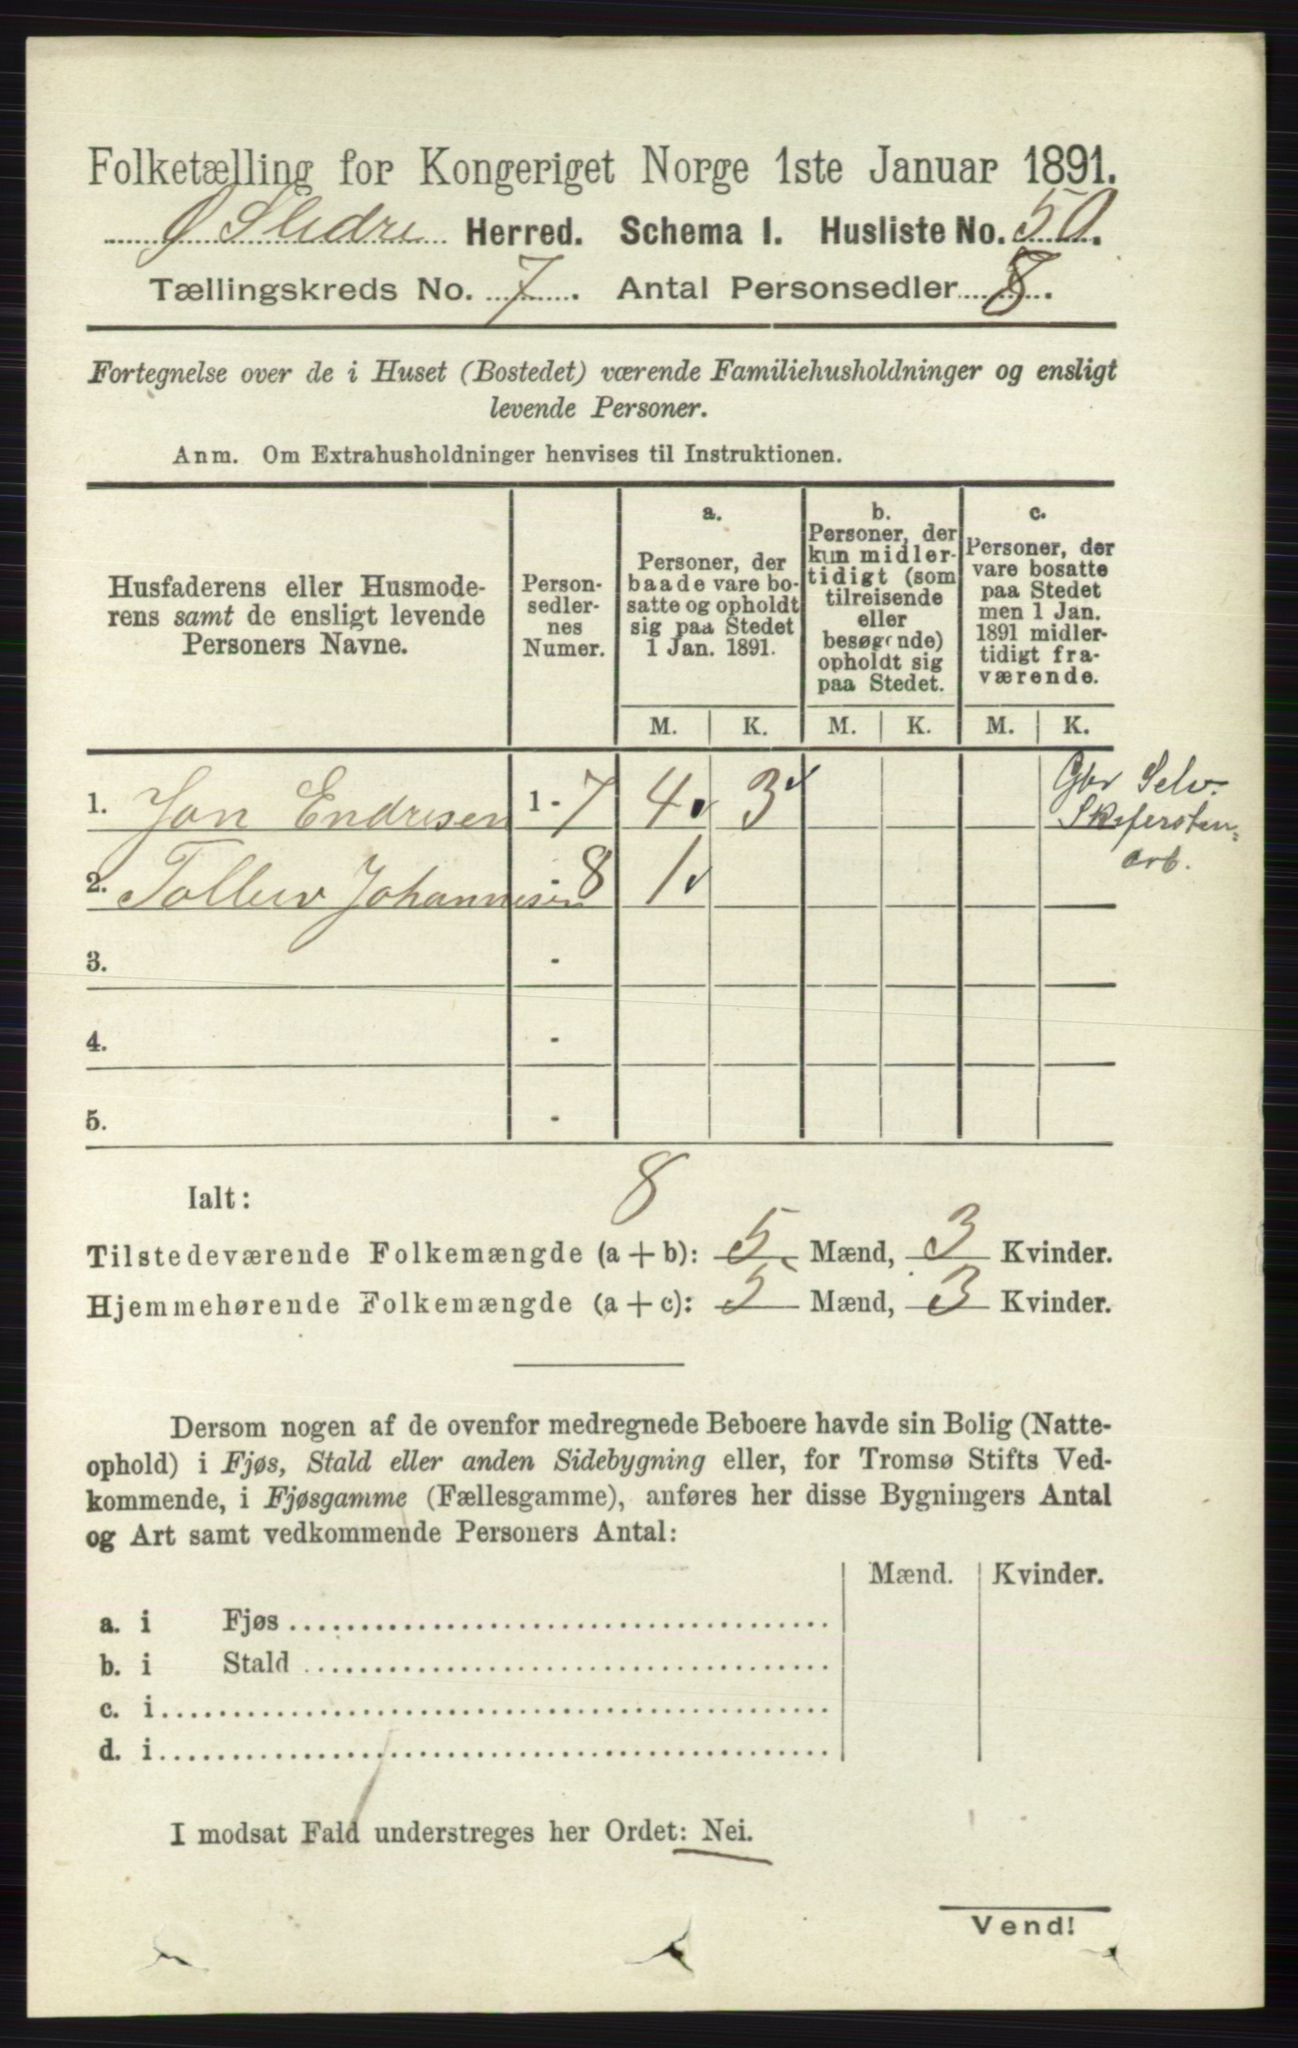 Folketælling for Kongeriget Norge 1ste Januar 1891.
Ø Slidre Herred. Schema I. Husliste No. 50.
Tællingskreds No. 7. Antal Personsedler 8.
Fortegnelse over de i Huset (Bostedet) værende Familiehusholdninger og ensligt
levende Personer.
Anm. Om Extrahusholdninger henvises til Instruktionen.
Husfaderens eller Husmode-
rens samt de ensligt levende
Personers Navne.
Person-
sedler-
nes
Numer.
a.
Personer, der
baade vare bo-
satte og opholdt
sig paa Stedet
1 Jan. 1891.
b.
Personer, der
kun midler-
tidigt (som
tilreisende
eller
besøgende)
opholdt sig
paa Stedet.
c.
Personer, der
vare bosatte
paa Stedet
men 1 Jan.
1891 midler-
tidigt fra-
værende.
M. K. M. K. M. K.
1. Jon Endresen 1 - 7 4 3
Gbr Selv.
Skifersten
arb.
2. Tollev Johannesen - 8 1
3. -
4. -
5. -
Ialt: 8
Tilstedeværende Folkemængde (a + b): 5 Mænd, 3 Kvinder.
Hjemmehørende Folkemængde (a + c): 5 Mænd, 3 Kvinder.
Dersom nogen af de ovenfor medregnede Beboere havde sin Bolig (Natte-
ophold) i Fjøs, Stald eller anden Sidebygning eller, for Tromsø Stifts Ved-
kommende, i Fjøsgamme (Fællesgamme), anføres her disse Bygningers Antal
og Art samt vedkommende Personers Antal:
Mænd. Kvinder.
a. i Fjøs
b. i Stald
c. i
d. i
I modsat Fald understreges her Ordet: Nei.
Vend!